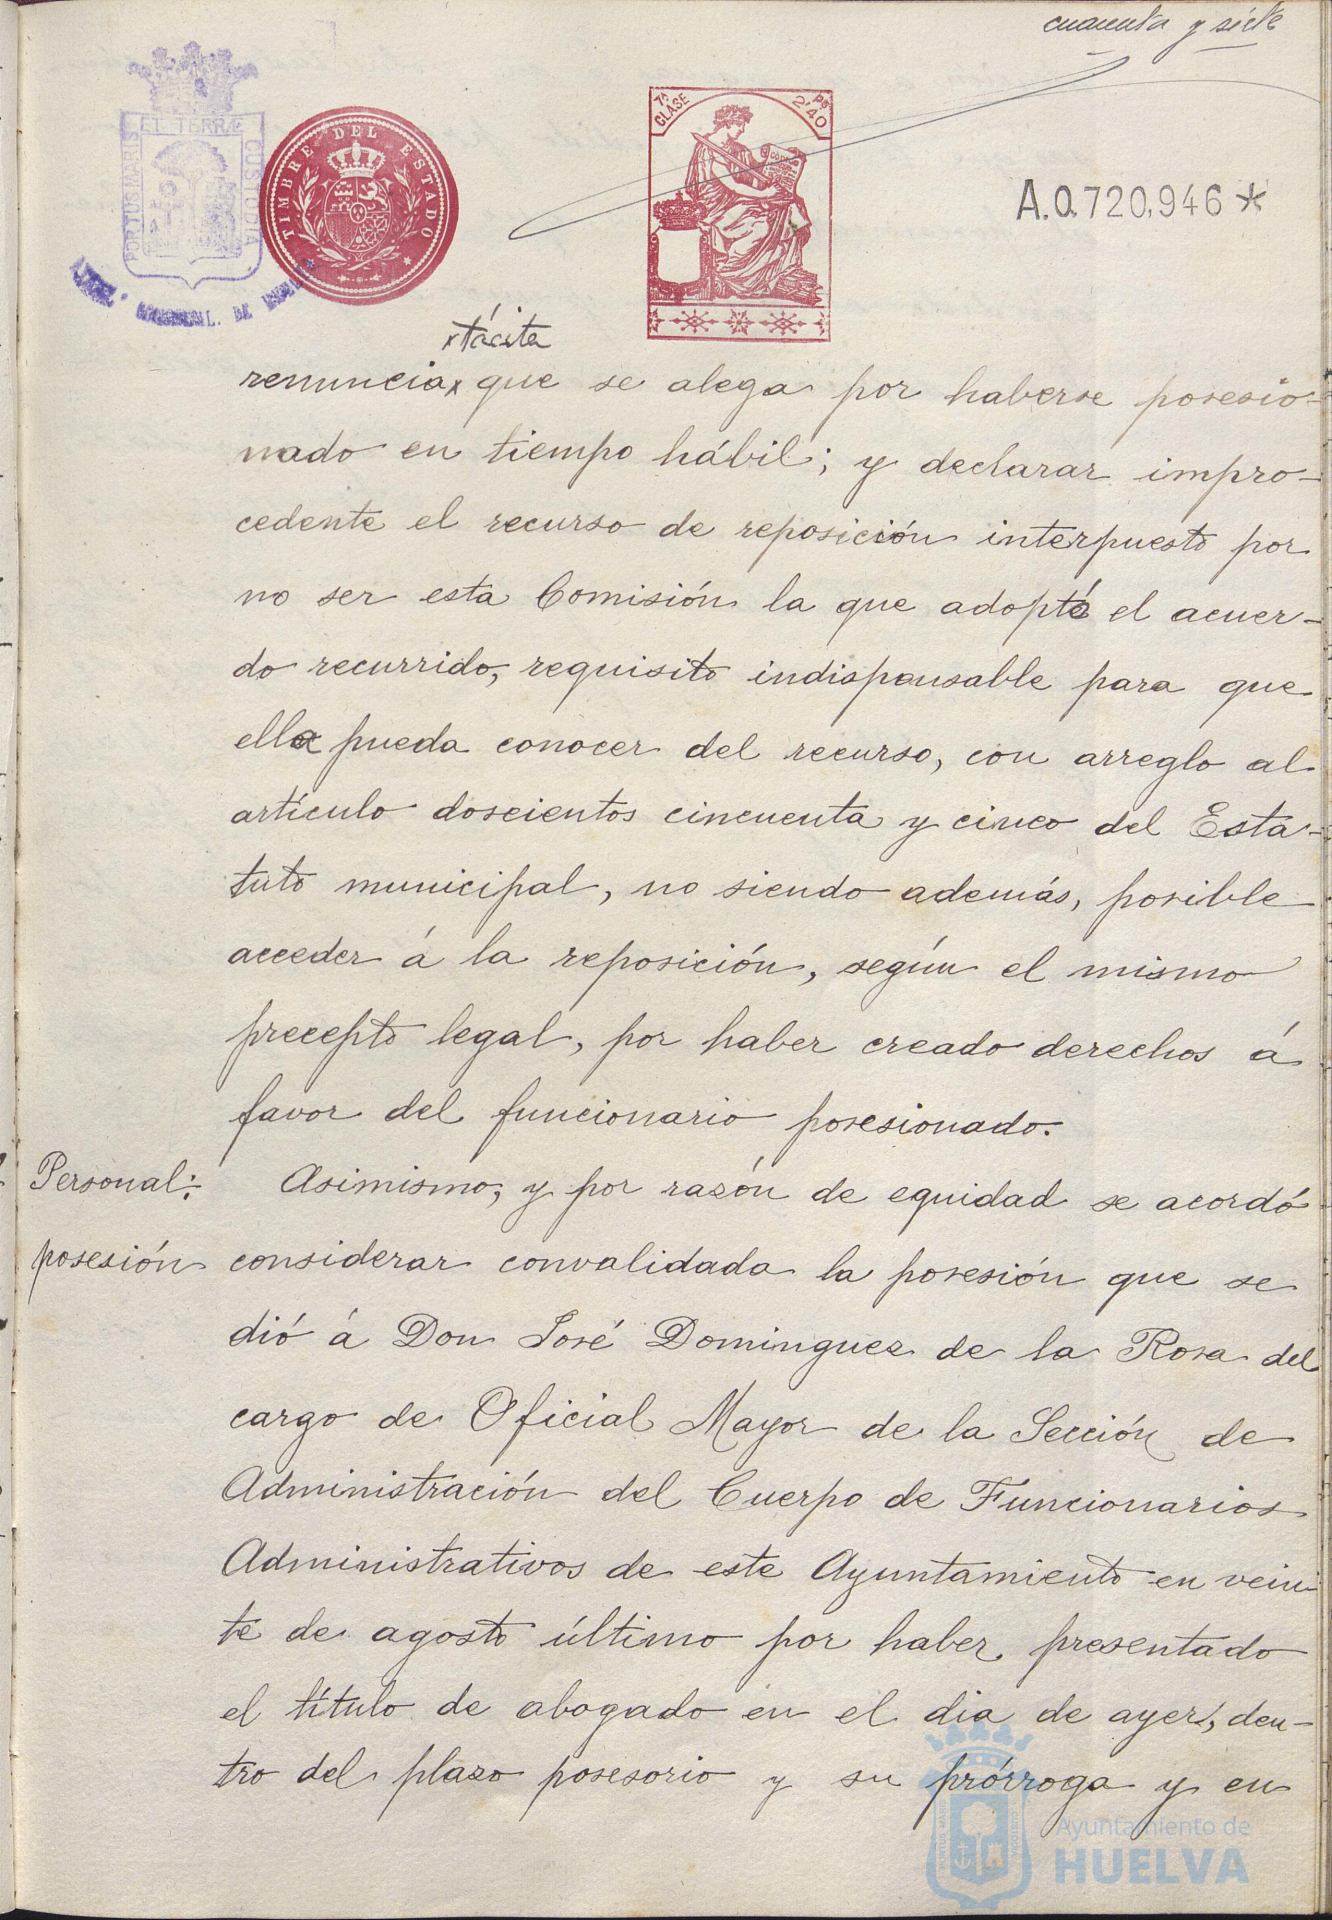 cuarenta y siete
7ª CLASE
2'40 PS
ET TERRÆ
PORTUS MARIS
CUSTODIA
TIMBRE DEL ESTADO
A.0.720,946*
tácita
renuncia que se alega por haberse posesio-
nado en tiempo hábil; y declarar impro-
cedente el recurso de reposición interpuesto por
no ser esta Comisión la que adoptó el acuer-
do recurrido, requisito indispensable para que
ella pueda conocer del recurso, con arreglo al
artículo doscientos cincuenta y cinco del Esta-
tuto municipal, no siendo además, posible
acceder á la reposición, según el mismo
precepto legal, por haber creado derechos á
favor del funcionario posesionado.
Personal:
posesión
Asimismo, y por razón de equidad se acordó
considerar convalidada la posesión que se
dió á Don José Dominguez de la Rosa del
cargo de Oficial Mayor de la Sección de
Administración del Cuerpo de Funcionarios
Administrativos de este Ayuntamiento en vein-
te de agosto último por haber presentado
el título de abogado en el dia de ayer, den-
tro del plazo posesorio y su prórroga y en
Ayuntamiento de
HUELVA